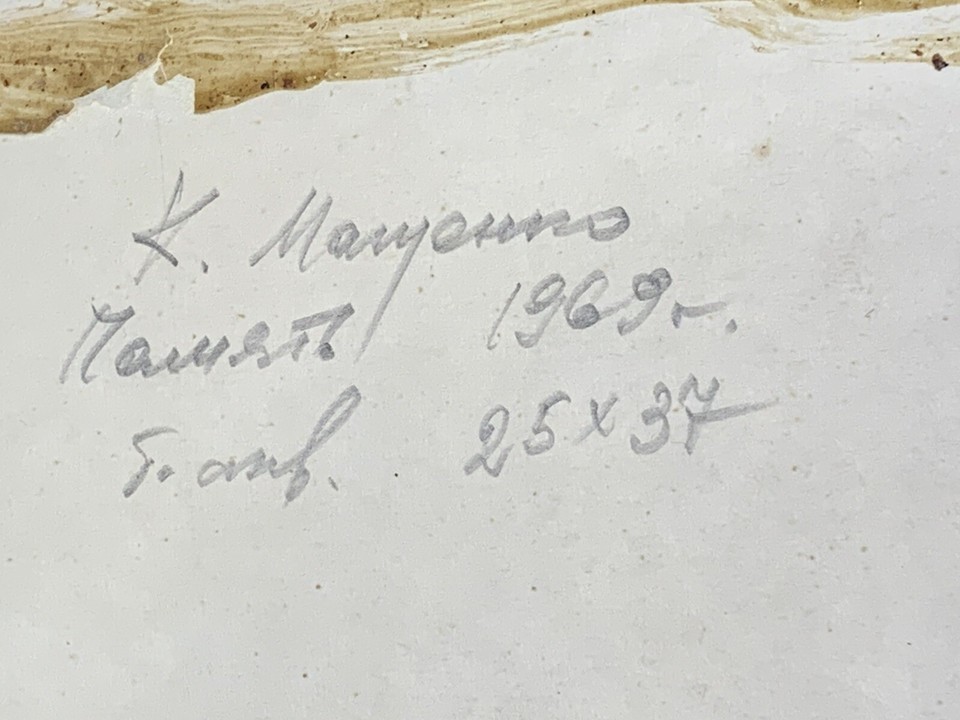 К. Мащенко
Память 1969 г.
б. акв. 25 x 37